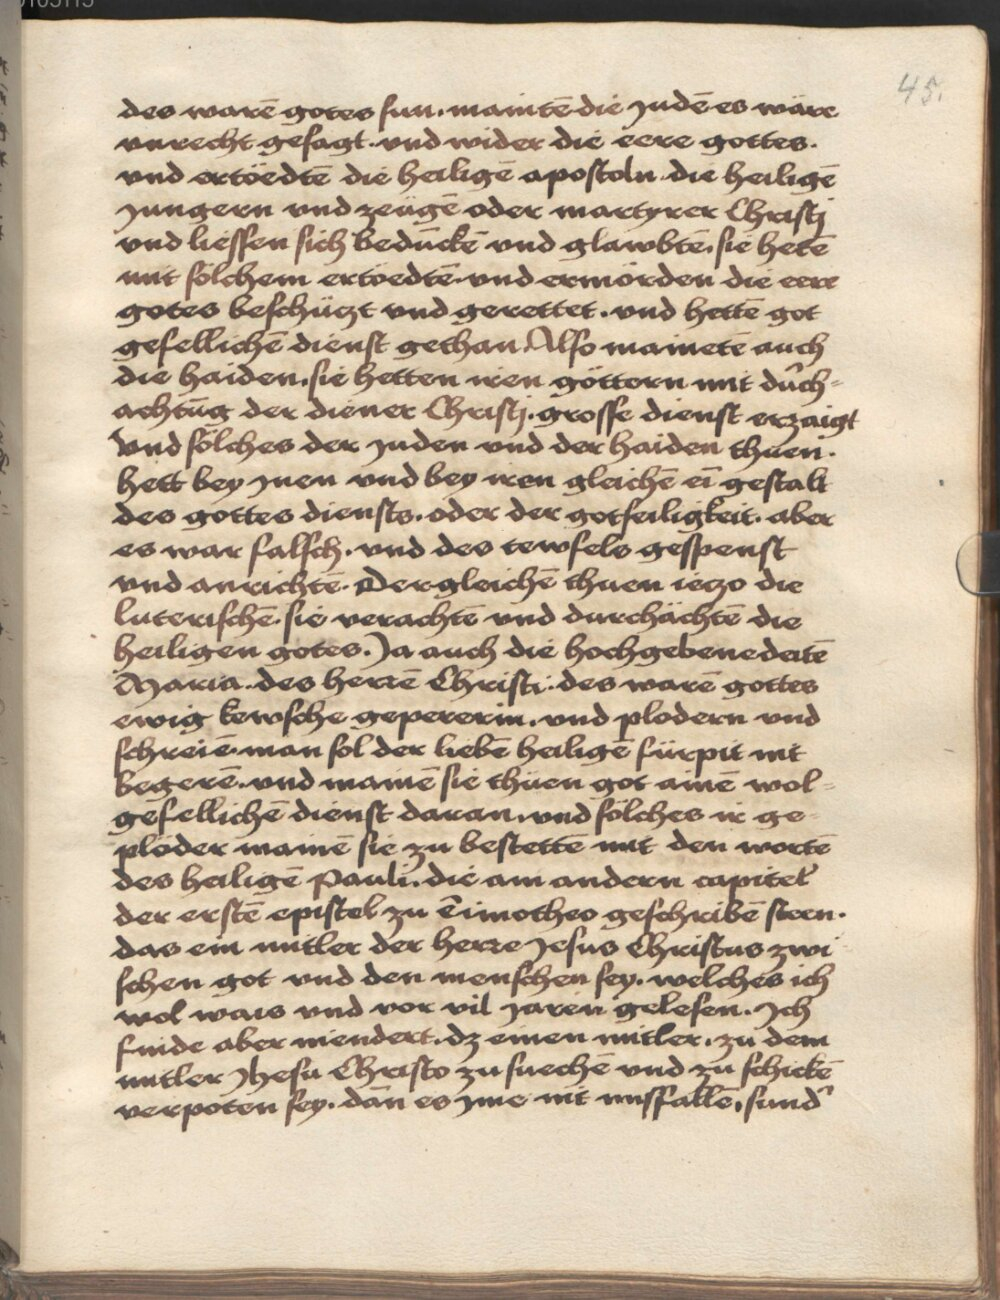 45.
des warē gotes sun. maintē die Judē es wäre
vnrecht gesagt. vnd wider die eere gottes.
vnd ertöedtē die heiligē apostoln. die heiligē
Jungern vnd zeügē oder martyrer Christj
vnd liessen sich bedūckē vnd glawbtē. sie hetē
mit sölchem ertöedtē. vnd ermörden die eere
gotes beschüczt vnd gerettet. vnd hettē got
gefellichē dienst gethan. Also mainetē auch
die haiden. sie hetten iren göttern mit dŭrch=
achtūg der diener Christj. grosse dienst erzaigt
Vnd sölches der Juden vnd der haiden thuen.
hett bey Jnen vnd bey iren gleichē ei gestalt
des gottes diensts. oder der gotseiligkeit. aber
es war falsch. vnd des tewfels gespenst
vnd anrichtē. Dergleichē thuen ieczo die
luterischē. sie verachtē vnd durchächtē die
heiligen gotes. Ja auch die hochgebenedeitē
Maria. des herrē Christi. des warē gottes
ewig kewsche gepererin. vnd plodern vnd
schreiē. man sol der liebē heiligē fürpit nit
begerē. vnd mainē sie thüen got ainē wol=
gefellichē dienst daran. vnd sölches ir ge=
plöder mainē sie zu bestettē mit den wortē
des heiligē Pauli. die am andern capitel
der erstē epistel zu Timotheo geschribē steen.
das ein mitler der herre Jesus Christus zwi
schen got vnd den menschen sey. welches ich
wol wais vnd vor vil Jaren gelesen. Ich
finde aber niendert. dz einen mitler. zu dem
mitler Jhesu Christo zu suechē vnd zu schickē
verpoten sey. dañ es Jme nit missfallē, sund'